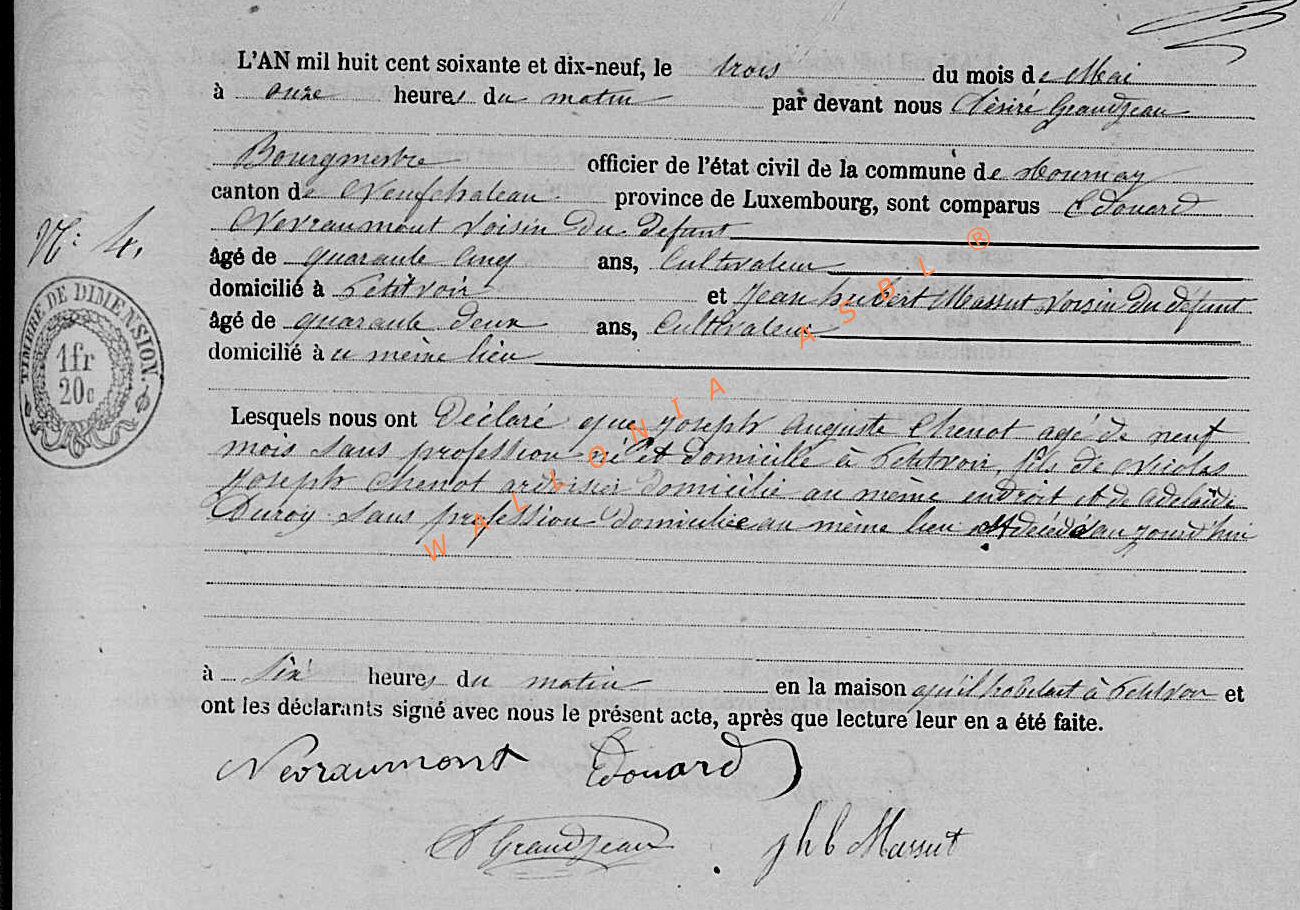 L'AN mil huit cent soixante et dix-neuf, le trois du mois de Mai
à onze heures du matin par devant nous Désiré Grandjean
Bourgmestre officier de l'état civil de la commune de Tournay
canton de Neufchateau province de Luxembourg, sont comparus Edouard
Nevraumont voisin du defunt
N° 4.
âgé de quarante cinq ans, Cultivateur
domicilié à Petitvoir et Jean hubert Massut voisin du défunt
âgé de quarante deux ans, Cultivateur
domicilié à ce même lieu
TIMBRE DE DIMENSION.
1fr
20c
Lesquels nous ont Déclaré que Joseph Auguste Chenot agé de neuf
mois sans profession né et domicilié à Petitvoir, fils de Nicolas
Joseph Chenot ardoisier domicilié au même endroit et de Adelaïde
Duroy sans profession domiciliée au même lieu est décédé au jourd'hui
à six heures du matin en la maison qu'il habitait à Petitvoir et
ont les déclarants signé avec nous le présent acte, après que lecture leur en a été faite.
Nevraumont Edouard
D Grandjean
jhb Massut
WALLONIA ASBL ®